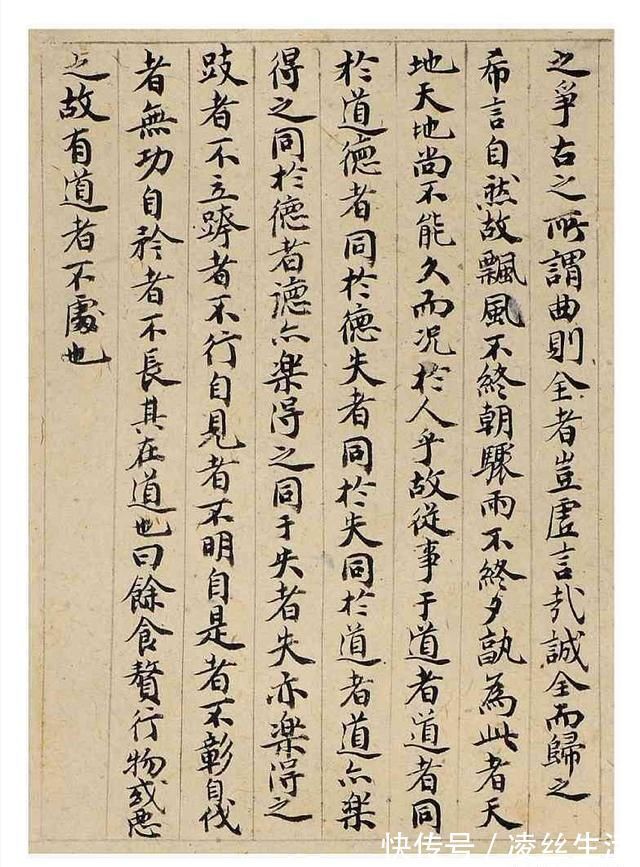 之爭古之所謂曲則全者豈虛言哉誠全而歸之
希言自然故飄風不終朝驟雨不終夕孰為此者天
地天地尚不能久而況於人乎故從事于道者道者同
於道德者同於德失者同於失同於道者道亦樂
得之同於德者德亦樂得之同于失者失亦樂得之
跂者不立跨者不行自見者不明自是者不彰自伐
者無功自矜者不長其在道也曰餘食贅行物或惡
之故有道者不處也
快传号/凌丝生活